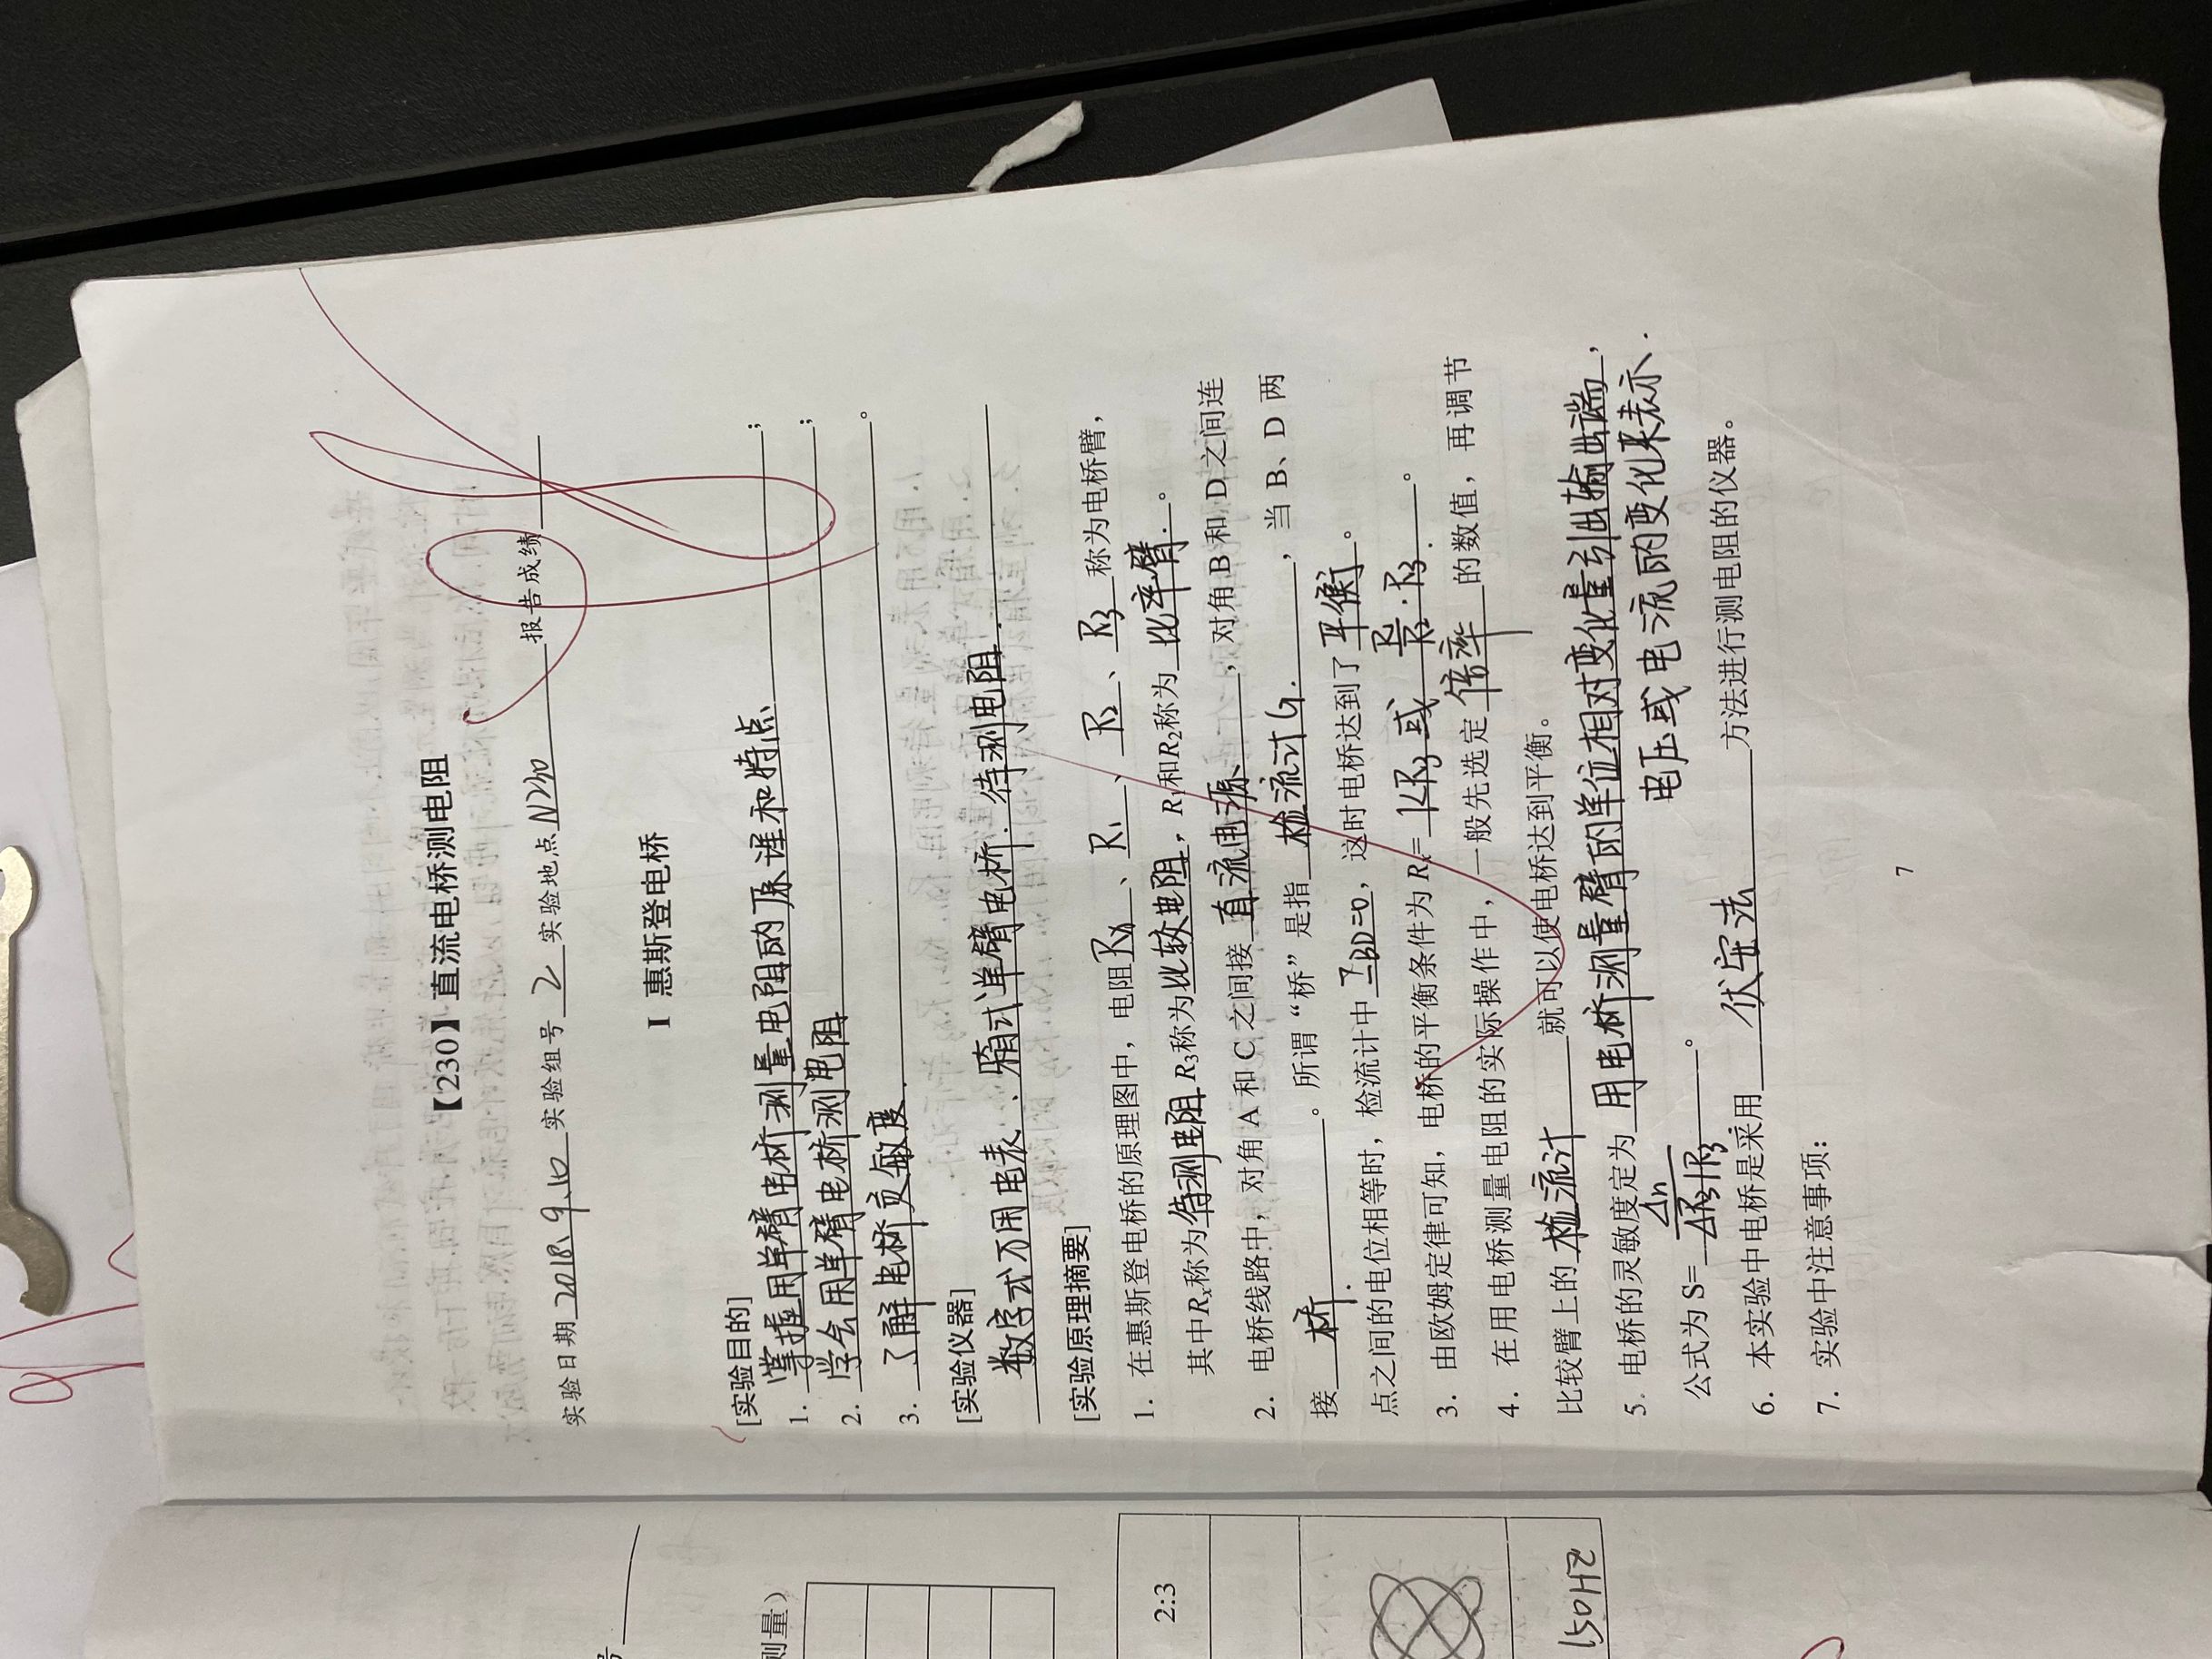 【230】直流电桥测电阻
实验日期 2018.9.10 实验组号 2 实验地点 N230 报告成绩
I 惠斯登电桥
[实验目的]
1. 掌握用单臂电桥测量电阻的原理和特点 ；
2. 学会用单臂电桥测电阻 ；
3. 了解电桥灵敏度. 。
[实验仪器]
数字式万用电表、箱式单臂电桥、待测电阻.
[实验原理摘要]
1. 在惠斯登电桥的原理图中，电阻 Rx 、 R1 、 R2 、 R3 称为电桥臂，
其中Rx称为 待测电阻 R3称为 比较电阻 ，R1和R2称为 比率臂. 。
2. 电桥线路中，对角 A 和 C 之间接 直流电源 ，对角 B 和 D 之间连
接 桥. 。所谓“桥”是指 检流计G. ，当 B、D 两
点之间的电位相等时，检流计中 IBD=0 ，这时电桥达到了 平衡 。
3. 由欧姆定律可知，电桥的平衡条件为 Rx= KR3 或 R1/R2·R3. 。
4. 在用电桥测量电阻的实际操作中，一般先选定 倍率 的数值，再调节
比较臂上的 检流计 就可以使电桥达到平衡。
5. 电桥的灵敏度定为 用电桥测量臂的单位相对变化量引出输出端 ，
电压或电流的变化来表示.
公式为 S= Δn/ΔR3/R3 。
6. 本实验中电桥是采用 伏安法 方法进行测电阻的仪器。
7. 实验中注意事项：
7
号
测量）
2:3
150HZ